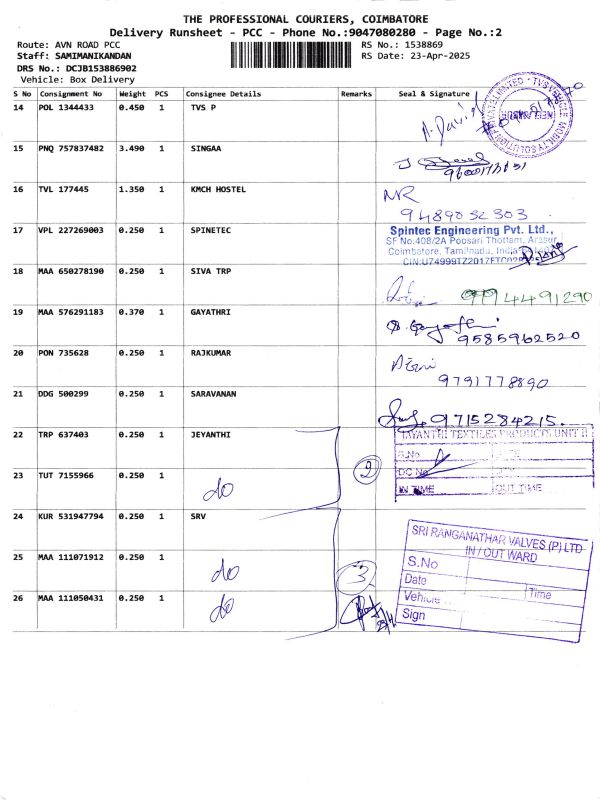 THE PROFESSIONAL COURIERS, COIMBATORE
Delivery Runsheet - PCC - Phone No.:9047080280 - Page No.:2
Route: AVN ROAD PCC RS No.: 1538869
Staff: SAMIMANIKANDAN RS Date: 23-Apr-2025
DRS No.: DCJB153886902
Vehicle: Box Delivery
S No Consignment No Weight PCS Consignee Details Remarks Seal & Signature
14 POL 1344433 0.450 1 TVS P
15 PNQ 757837482 3.490 1 SINGAA
16 TVL 177445 1.350 1 KMCH HOSTEL NR
9489032303
17 VPL 227269003 0.250 1 SPINETEC Spintec Engineering Pvt. Ltd.,
SF No.408/2A Poosari Thottam, Arasur
Coimbatore, Tamilnadu, India
18 MAA 650278190 0.250 1 SIVA TRP
9994491290
19 MAA 576291183 0.370 1 GAYATHRI
9585962520
20 PON 735628 0.250 1 RAJKUMAR
9791778890
21 DDG 500299 0.250 1 SARAVANAN
9715284215.
22 TRP 637403 0.250 1 JEYANTHI JAYANTHI TEXTILES PRODUCTS UNIT II
S.No DATE
DC No
IN TIME OUT TIME
23 TUT 7155966 0.250 1 do 2
24 KUR 531947794 0.250 1 SRV SRI RANGANATHAR VALVES (P) LTD
IN / OUT WARD
S.No
Date
Vehicle Time
Sign
25 MAA 111071912 0.250 1 do 3
26 MAA 111050431 0.250 1 do